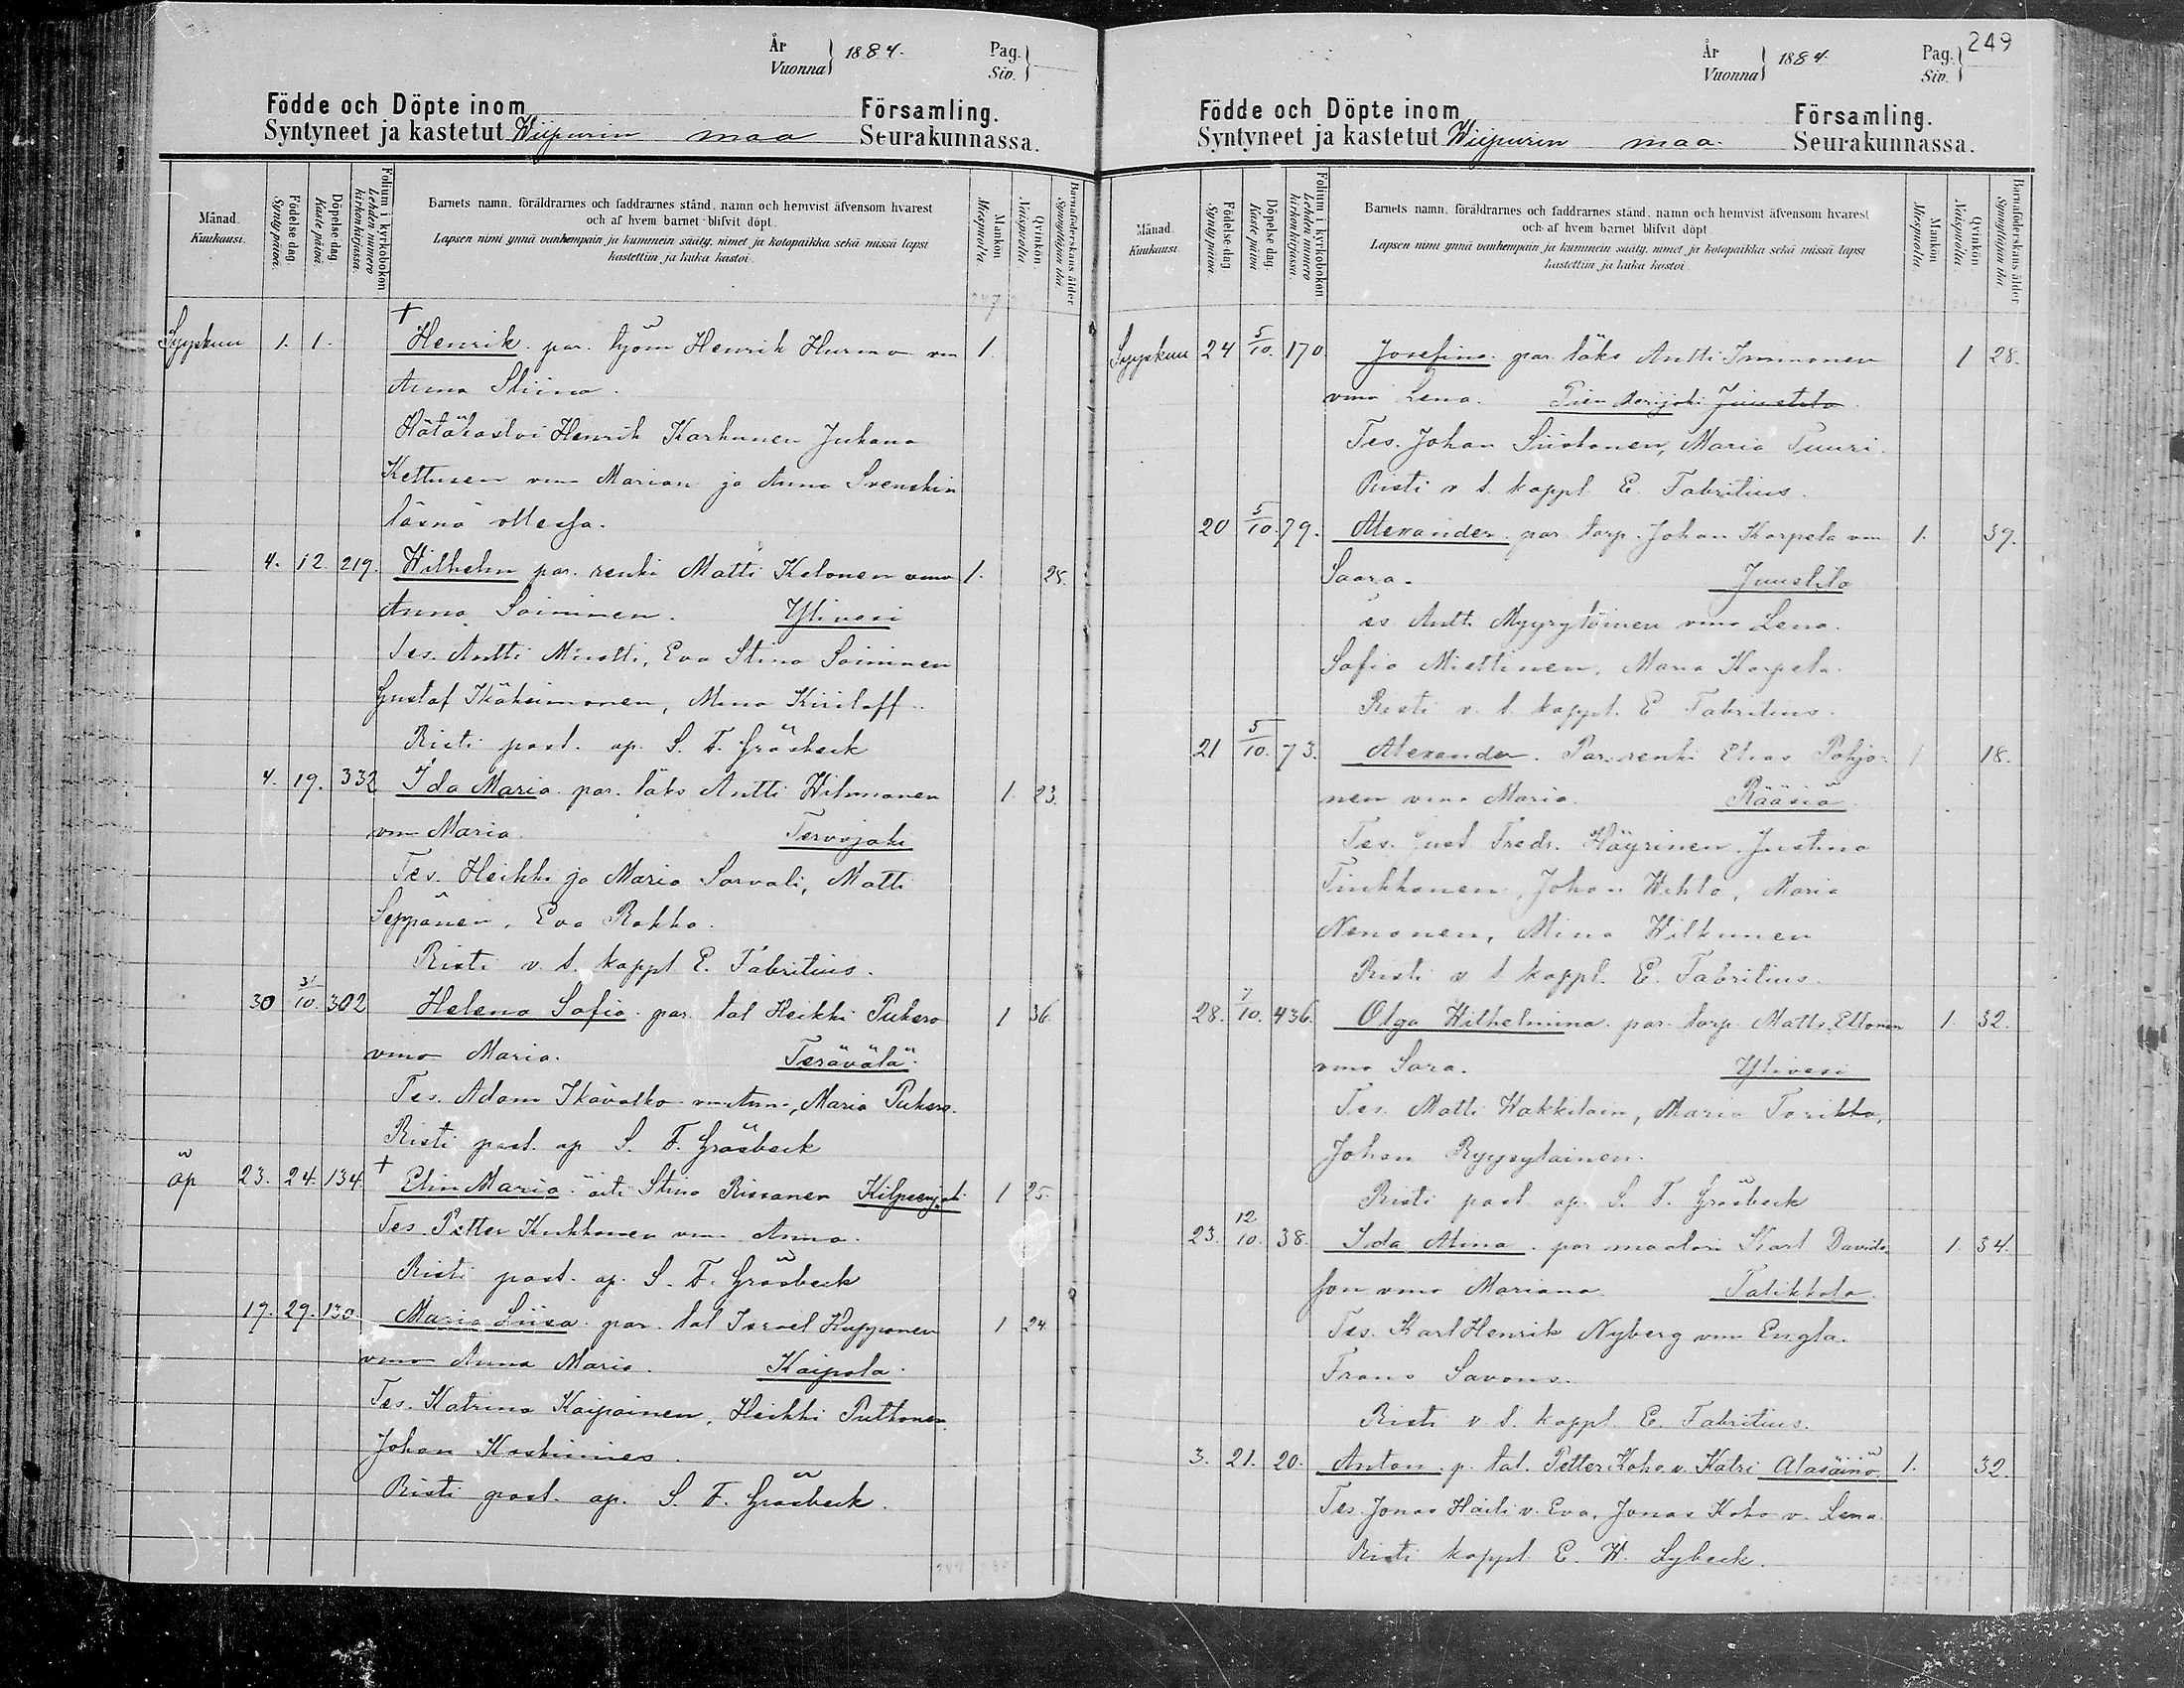 År
Vuonna } 1884.
Pag.
Siv. }
Födde och Döpte inom Församling.
Syntyneet ja kastetut Wiipurin maa Seurakunnassa.
Månad.
Kuukausi.
Födelse dag.
Synty päivä.
Döpelse dag.
Kaste päivä.
Folium i kyrkoboken
Lehden numero kirkonkirjassa.
Barnets namn, föräldrarnes och faddrarnes stånd, namn och hemvist äfvensom hvarest
och af hvem barnet blifvit döpt.
Lapsen nimi ynnä vanhempain ja kummein sääty, nimet ja kotopaikka sekä missä lapsi
kastettiin ja kuka kastoi.
Mankön
Miespuolia
Qvinkön.
Naispuolia
Barnaföderskans ålder
Synnyttäjän ikä.
Syyskuu 1. 1. + Henrik par. työm Henrik Hurmo vm 1.
Anna Stiina.
Hätäkastoi Henrik Karhunen Juhana
Kettusen vmo Marian ja Anna Svenskin
läsnä ollessa.
4. 12. 219. Wilhelm par. renki Matti Kelonen vmo 1. 28.
Anna Soininen. Ylivesi
Tes. Antti Miretti, Eva Stina Soininen
Gustaf Ikäheimonen, Mina Kiriloff.
Risti past. ap. S. F. Gräsbeck
4. 19. 332 Ida Maria par. läks Antti Wilmanen 1. 23.
vm Maria. Tervajoki
Tes. Heikki ja Maria Sarvali, Matti
Seppänen, Eva Rokka.
Risti v. t. kappl E. Fabritius.
30 31/10. 302 Helena Sofia par. tal Heikki Pukero 1 36.
vmo Maria. Terävälä.
Tes. Adam Ikävalko vm Anna, Maria Pukero.
Risti past. ap S. F. Gräsbeck
äp 23. 24. 134 + Elin Maria äiti Stina Rissanen Kilpeenjoki 1 25.
Tes. Petter Kukkonen vm Anna.
Risti past. ap. S. F. Gräsbeck
19. 29. 130. Maria Liisa par. tal Israel Kupponen 1 24.
vmo Anna Maria. Kaipola.
Tes. Katrina Kaipainen, Heikki Pulkkonen
Johan Koskimies.
Risti past. ap. S. F. Gräsbeck.
År
Vuonna } 1884.
Pag.
Siv. } 249
Födde och Döpte inom Församling.
Syntyneet ja kastetut Wiipurin maa. Seurakunnassa.
Månad.
Kuukausi.
Födelse dag.
Synty päivä.
Döpelse dag.
Kaste päivä
Folium i kyrkoboken
Lehden numero kirkonkirjassa.
Barnets namn, föräldrarnes och faddrarnes stånd, namn och hemvist äfvensom hvarest
och af hvem barnet blifvit döpt
Lapsen nimi ynnä vanhempain ja kummein sääty, nimet ja kotopaikka sekä missä lapsi
kastettiin ja kuka kastoi
Mankön
Miespuolia
Qvinkön
Naispuolia
Barnaföderskans ålder
Synnyttäjän ikä.
Syyskuu 24 5/10. 170 Josefina par. läks Antti Immonen 1 28.
vmo Lena. Pien Merijoki Juustila.
Tes. Johan Siiskonen, Maria Tuuri.
Risti v. t. kappl. E. Fabritius.
20 5/10. 79. Alexander par. torp. Johan Korpela vm 1. 39.
Saara. Juustila
es Antti Myyryläinen vmo Lena.
Sofia Miettinen, Maria Korpela.
Risti v. t. kappl. E Fabritius.
21 5/10. 73. Alexander. Par. renki Elias Pohjo- 1 18.
nen vmo Maria. Rääsiä.
Tes. Gust Fredr. Häyrinen, Justina
Tiukkanen, Johan Wihto, Maria
Nenonen, Mina Wilkunen
Risti v t kappl. E. Fabritius.
28. 7/10. 436. Olga Wilhelmina par. torp Matti Ellonen 1. 32.
vmo Sara. Ylivesi
Tes. Matti Wakkilain, Maria Torikka,
Johan Ryypyläinen.
Risti past. ap. S. F. Gräsbeck
23. 12/10. 38. Ida Alina. par maalari Karl Davids- 1. 34.
son vmo Mariana. Talikkala.
Tes. Karl Henrik Nyberg vm Engla.
Frans Savons.
Risti v. t. kappl. E. Fabritius.
3. 21. 20. Anton p. tal. Petter Koho v. Katri Alasäiniö 1. 32.
Tes. Jonas Haili v. Eva, Jonas Koho v. Lena
Risti kappl. E. W. Lybeck.